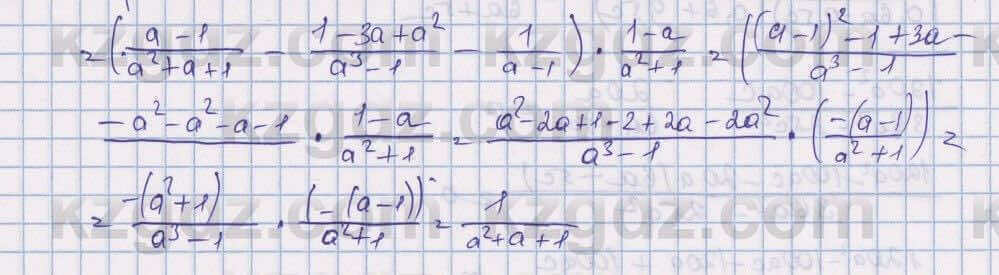 = ( (a - 1)/(a² + a + 1) - (1 - 3a + a²)/(a³ - 1) - 1/(a - 1) ) · (1 - a)/(a² + 1) = ( ((a - 1)² - 1 + 3a -)/(a³ - 1)
(- a² - a² - a - 1)/ · (1 - a)/(a² + 1) = (a² - 2a + 1 - 2 + 2a - 2a²)/(a³ - 1) · ( (-(a - 1))/(a² + 1) ) =
= (-(a² + 1))/(a³ - 1) · (-(a - 1))/(a² + 1) = 1/(a² + a + 1)